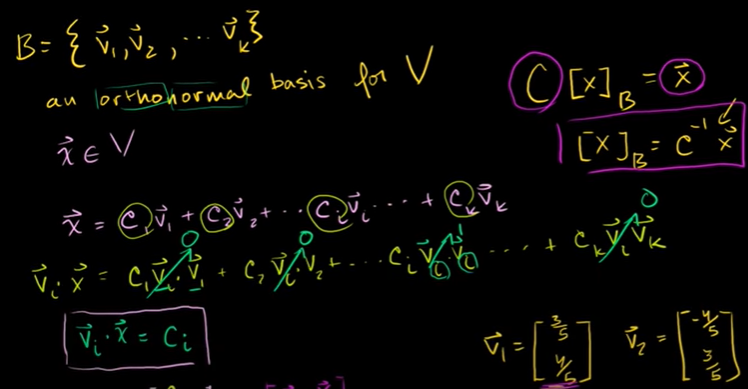 B = { v⃗₁, v⃗₂, ... v⃗ₖ }
an orthonormal basis for V
C [x]_B = x⃗
[x]_B = C⁻¹ x⃗
x⃗ ∈ V
x⃗ = c₁v⃗₁ + c₂v⃗₂ + ... cᵢv⃗ᵢ ... + cₖv⃗ₖ
0 0 1 0
v⃗ᵢ · x⃗ = c₁v⃗ᵢ · v⃗₁ + c₂v⃗ᵢ · v⃗₂ + ... cᵢv⃗ᵢ · v⃗ᵢ ... + cₖv⃗ᵢ · v⃗ₖ
v⃗ᵢ · x⃗ = cᵢ
v⃗₁ = [3/5 4/5] v⃗₂ = [-4/5 3/5]